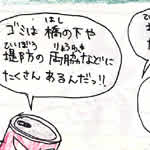 ゴミは橋の下や
堤防の両脇などに
たくさんあるんだっ!!